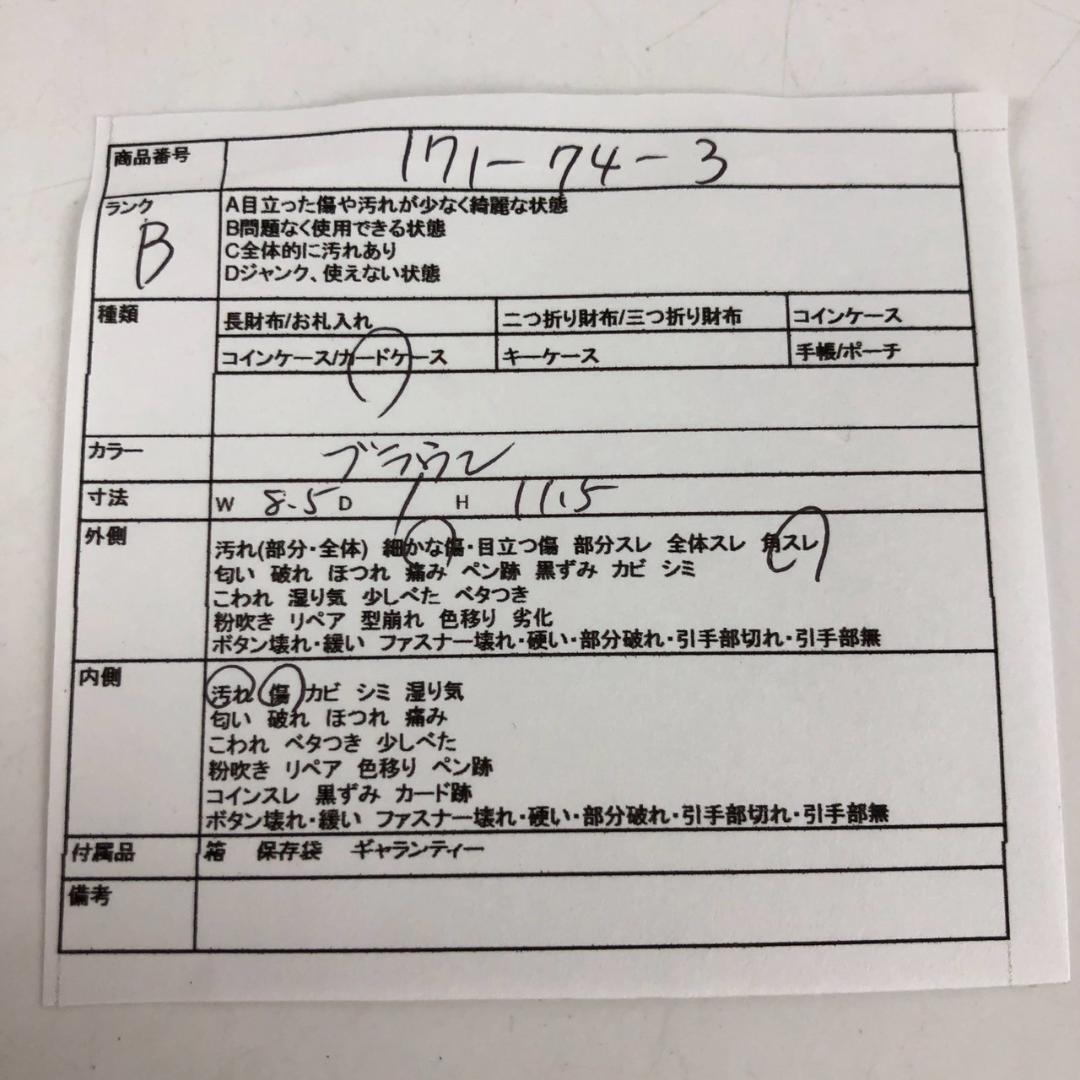 商品番号 171-74-3
ランク A目立った傷や汚れが少なく綺麗な状態
B B問題なく使用できる状態
C全体的に汚れあり
Dジャンク、使えない状態
種類 長財布/お札入れ 二つ折り財布/三つ折り財布 コインケース
コインケース/カードケース キーケース 手帳/ポーチ
カラー ブラウン
寸法 W 8.5 D 1 H 11.5
外側 汚れ(部分・全体) 細かな傷・目立つ傷 部分スレ 全体スレ 角スレ
匂い 破れ ほつれ 痛み ペン跡 黒ずみ カビ シミ
こわれ 湿り気 少しべた ベタつき
粉吹き リペア 型崩れ 色移り 劣化
ボタン壊れ・緩い ファスナー壊れ・硬い・部分破れ・引手部切れ・引手部無
内側 汚れ 傷 カビ シミ 湿り気
匂い 破れ ほつれ 痛み
こわれ ベタつき 少しべた
粉吹き リペア 色移り ペン跡
コインスレ 黒ずみ カード跡
ボタン壊れ・緩い ファスナー壊れ・硬い・部分破れ・引手部切れ・引手部無
付属品 箱 保存袋 ギャランティー
備考